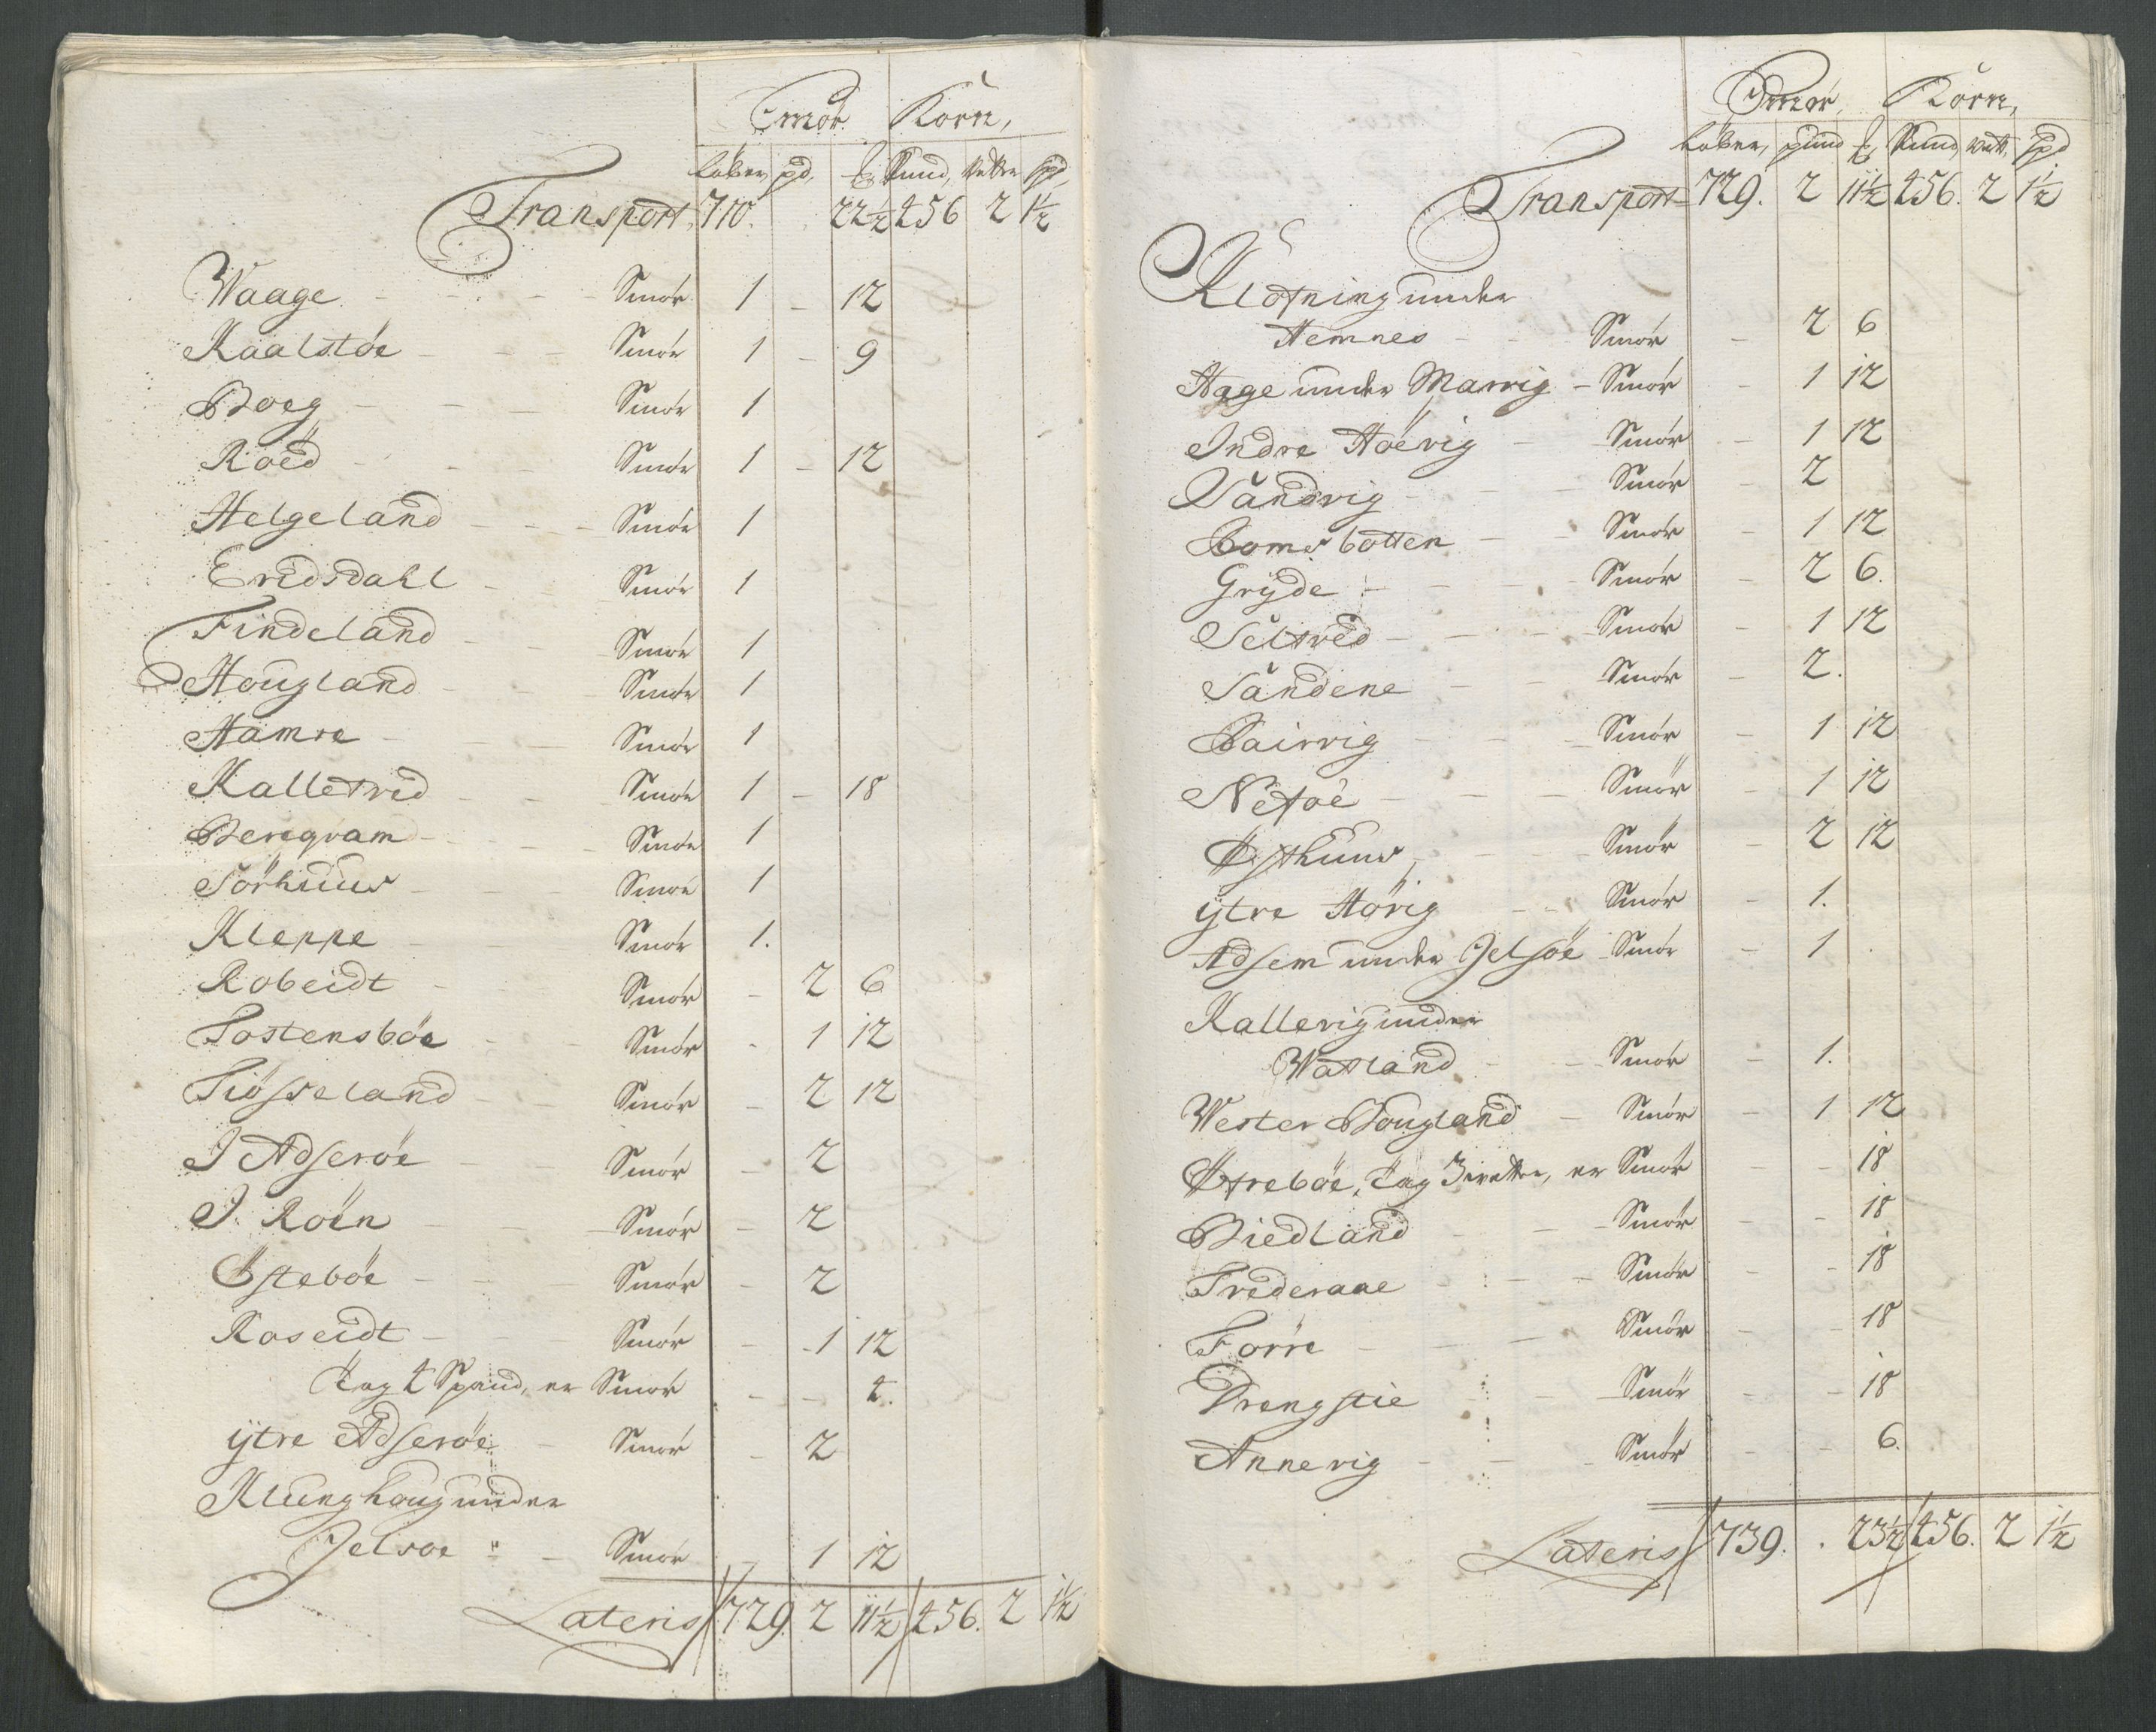 Smör. Korn,
Löber, pd, ℔ Pund, Vetter Spd,
Transport, 710. 22½ 456 2 1½
Waage Smör 1 - 12
Kaalstöe Smör 1 - 9
Borg Smör 1
Röed Smör 1 - 12
Helgeland Smör 1
Eridsdahl Smör 1
Findeland Smör 1
Hougland Smör 1
Hamre Smör 1
Kalletvid Smör 1 - 18
Beregvam Smör 1
Sörhuus Smör 1
Kleppe Smör 1.
Robeidt Smör - 2 6
Tostensböe Smör - 1 12
Tiösseland Smör - 2 12
I Adseröe Smör - 2
I. Röen Smör - 2
Östeböe Smör - 2
Roseidt Smör - 1 12
Tag 4 Spand, er Smör - - 4.
ÿtre Adseröe Smör - 2
Klunghoug under
Jelsöe Smör - 1 12
Lateris 729. 2 11½ 456. 2 1½
Smör, Korn,
Löber, pund ℔, Pund, Vett, Spd
Transport 729. 2 11½ 456. 2 1½
Klofning under
Hemnes Smör - 2 6
Hage under Marvig - Smör - 1 12
Indre Höevig Smör - 1 12
Sandvig Smör - 2
Bomsbotten Smör - 1 12
Grÿde Smör - 2 6.
Seltved Smör - 1 12
Sandene Smör - 2.
Bairvig Smör - 1 12
Nétöe Smör - 1 12
Østhuus Smör - 2 12
ÿtre Hövig Smör - 1.
Adsem under Jelsöe Smör - 1
Kallevig under
Watland Smör - 1.
Wester Bougland Smör - 1 12
Øtreböe, Tag 3 vetter, er Smör - - 18
Biedland Smör - - 18
Frederaae Smör - - 18
Förre Smör - - 18
Drengstie Smör - - 18
Annevig Smör - - 6.
Lateris 739. . 23½ 456. 2 1½